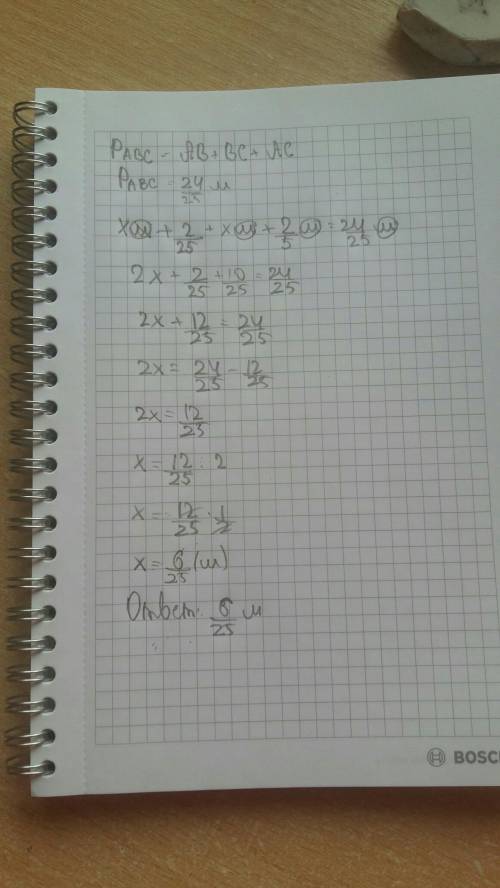 P ABC = AB + BC + AC
P ABC = 24/25 м
x м + 2/25 + x м + 2/5 м = 24/25 м
2x + 2/25 + 10/25 = 24/25
2x + 12/25 = 24/25
2x = 24/25 - 12/25
2x = 12/25
x = 12/25 : 2
x = 12/25 · 1/2
x = 6/25 (м)
Ответ: 6/25 м
BOSCH